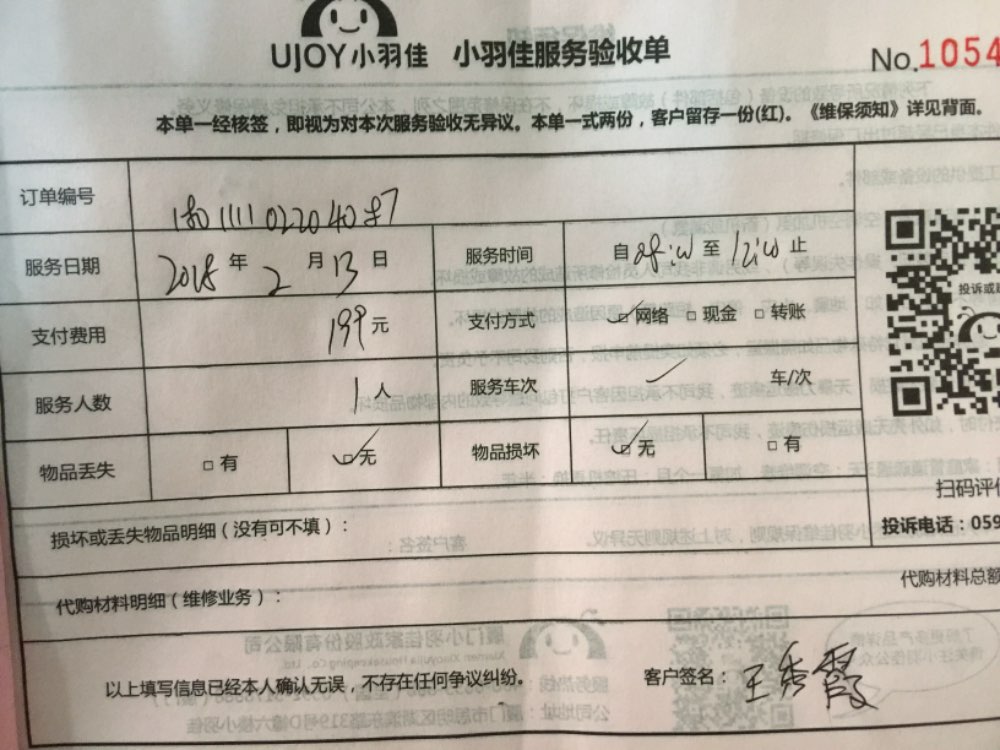 UJOY小羽佳 小羽佳服务验收单
No.1054
本单一经核签，即视为对本次服务验收无异议。本单一式两份，客户留存一份(红)。《维保须知》详见背面。
订单编号
服务日期 2018年 2月 13日 服务时间 自 至 止
支付费用 199元 支付方式 网络 □现金 □转账
服务人数 1人 服务车次 车/次
物品丢失 □有 无 物品损坏 无 □有
投诉或
扫码评
损坏或丢失物品明细（没有可不填）：
投诉电话：059
代购材料明细（维修业务）：
代购材料总额
以上填写信息已经本人确认无误，不存在任何争议纠纷。 客户签名：王秀霞